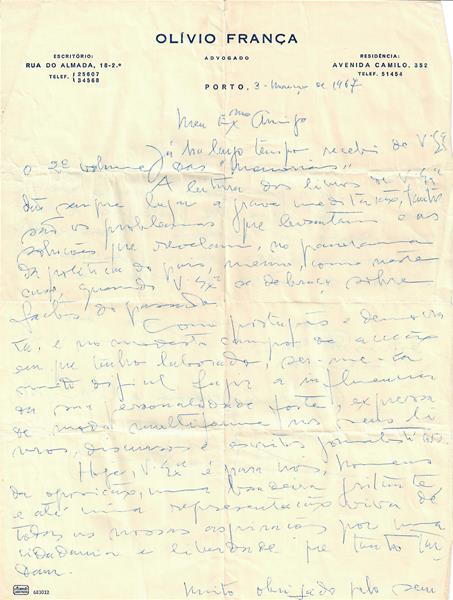 OLÍVIO FRANÇA
ADVOGADO
ESCRITÓRIO:
RUA DO ALMADA, 18-2.º
TELEF. { 25607
34568
RESIDÊNCIA:
AVENIDA CAMILO, 352
TELEF. 51454
PORTO, 3-Março de 1967
Meu Exmo Amigo
Já ha largo tempo recebi de V. Exª
o 2º volume das "Memórias"
A leitura dos livros de V. Exª
dão sempre lugar a grave meditação, tantos
são os problemas que levantam e as
soluções que revelam, no panorama
da politica do país, mesmo, como neste
caso, quando V. Exª se debruça sobre
factos do passado.
Como português e democra
ta, e no modesto campo de acção
em que tenho laborado, ser-me-ia
muito dificil fugir a influencia
da sua personalidade forte, expressa
de modo multiforme nos seus li
vros, discursos e escritos jornalisticos
Hoje, V. Exª é para nós, homens
da oposição, uma bandeira
e até uma representação viva de
todas as nossas aspirações por uma
cidadania e liberdade que tanto tar
dam.
Muito obrigado pelo seu
683032